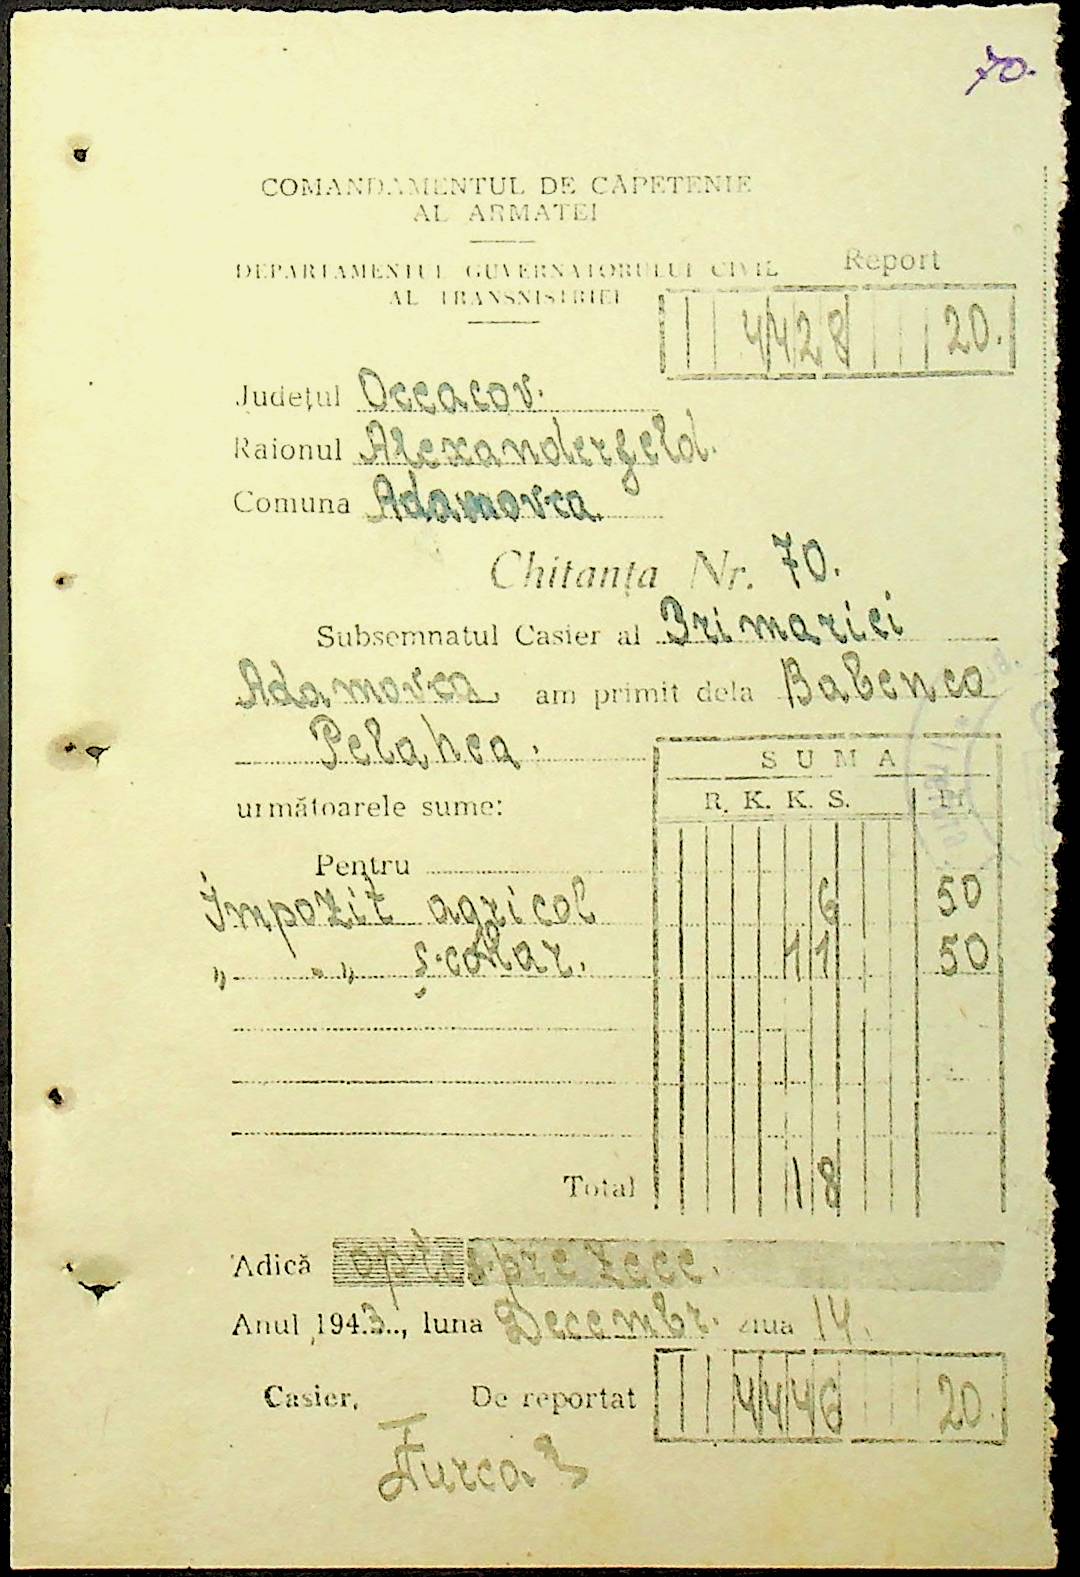 70.
COMANDAMENTUL DE CAPETENIE
AL ARMATEI
DEPARTAMENTUL GUVERNATORULUI CIVIL
AL TRANSNISTRIEI
Report
4428 20.
Județul Occacov.
Raionul Alexanderfeld.
Comuna Adamovca
Chitanța Nr. 70.
Subsemnatul Casier al Primariei
Adamovca am primit dela Babenco
Pelahea.
SUMA
următoarele sume: R. K. K. S. Pf.
Pentru
Impozit agricol 6 50
„ „ școlar. 11 50
Total 18
Adică optesprezece.
Anul 1943.., luna Decembr. ziua 14.
Casier, De reportat 4446 20.